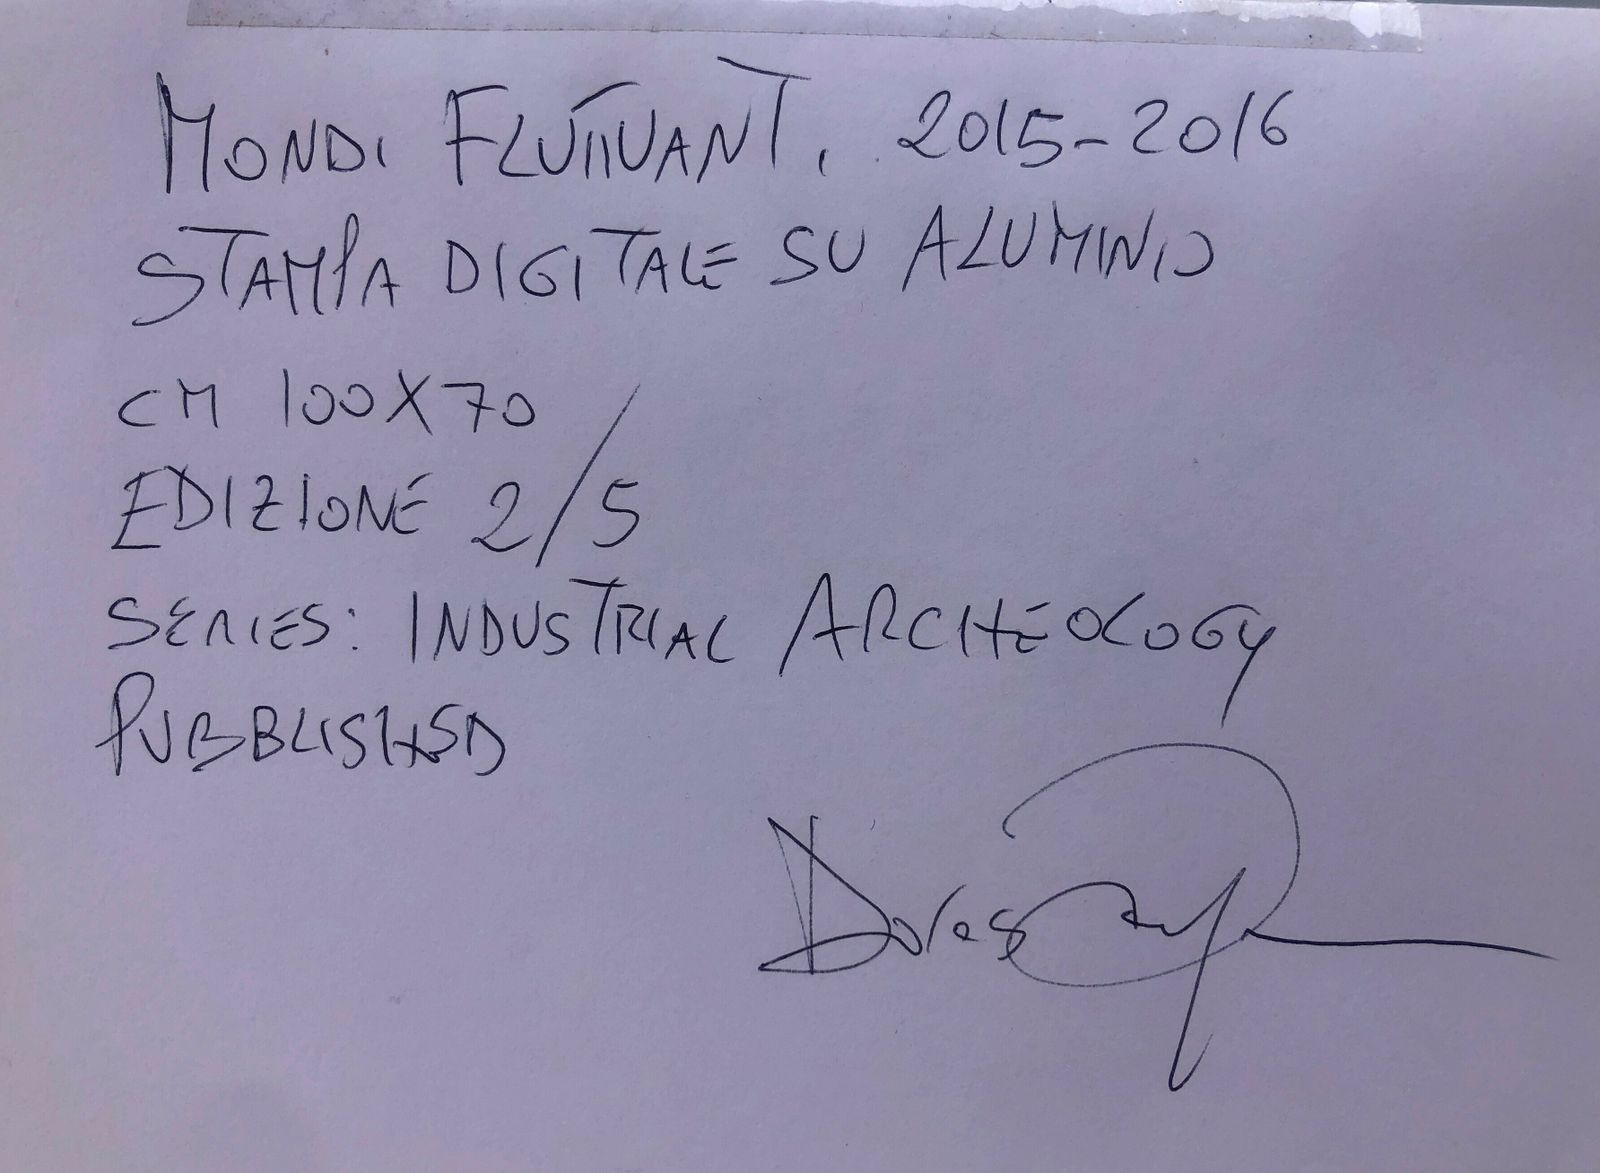 MONDI FLUTTUANTI, 2015-2016
STAMPA DIGITALE SU ALUMINIO
CM 100X70
EDIZIONE 2/5
SERIES: INDUSTRIAL ARCHEOLOGY
PUBBLISHED